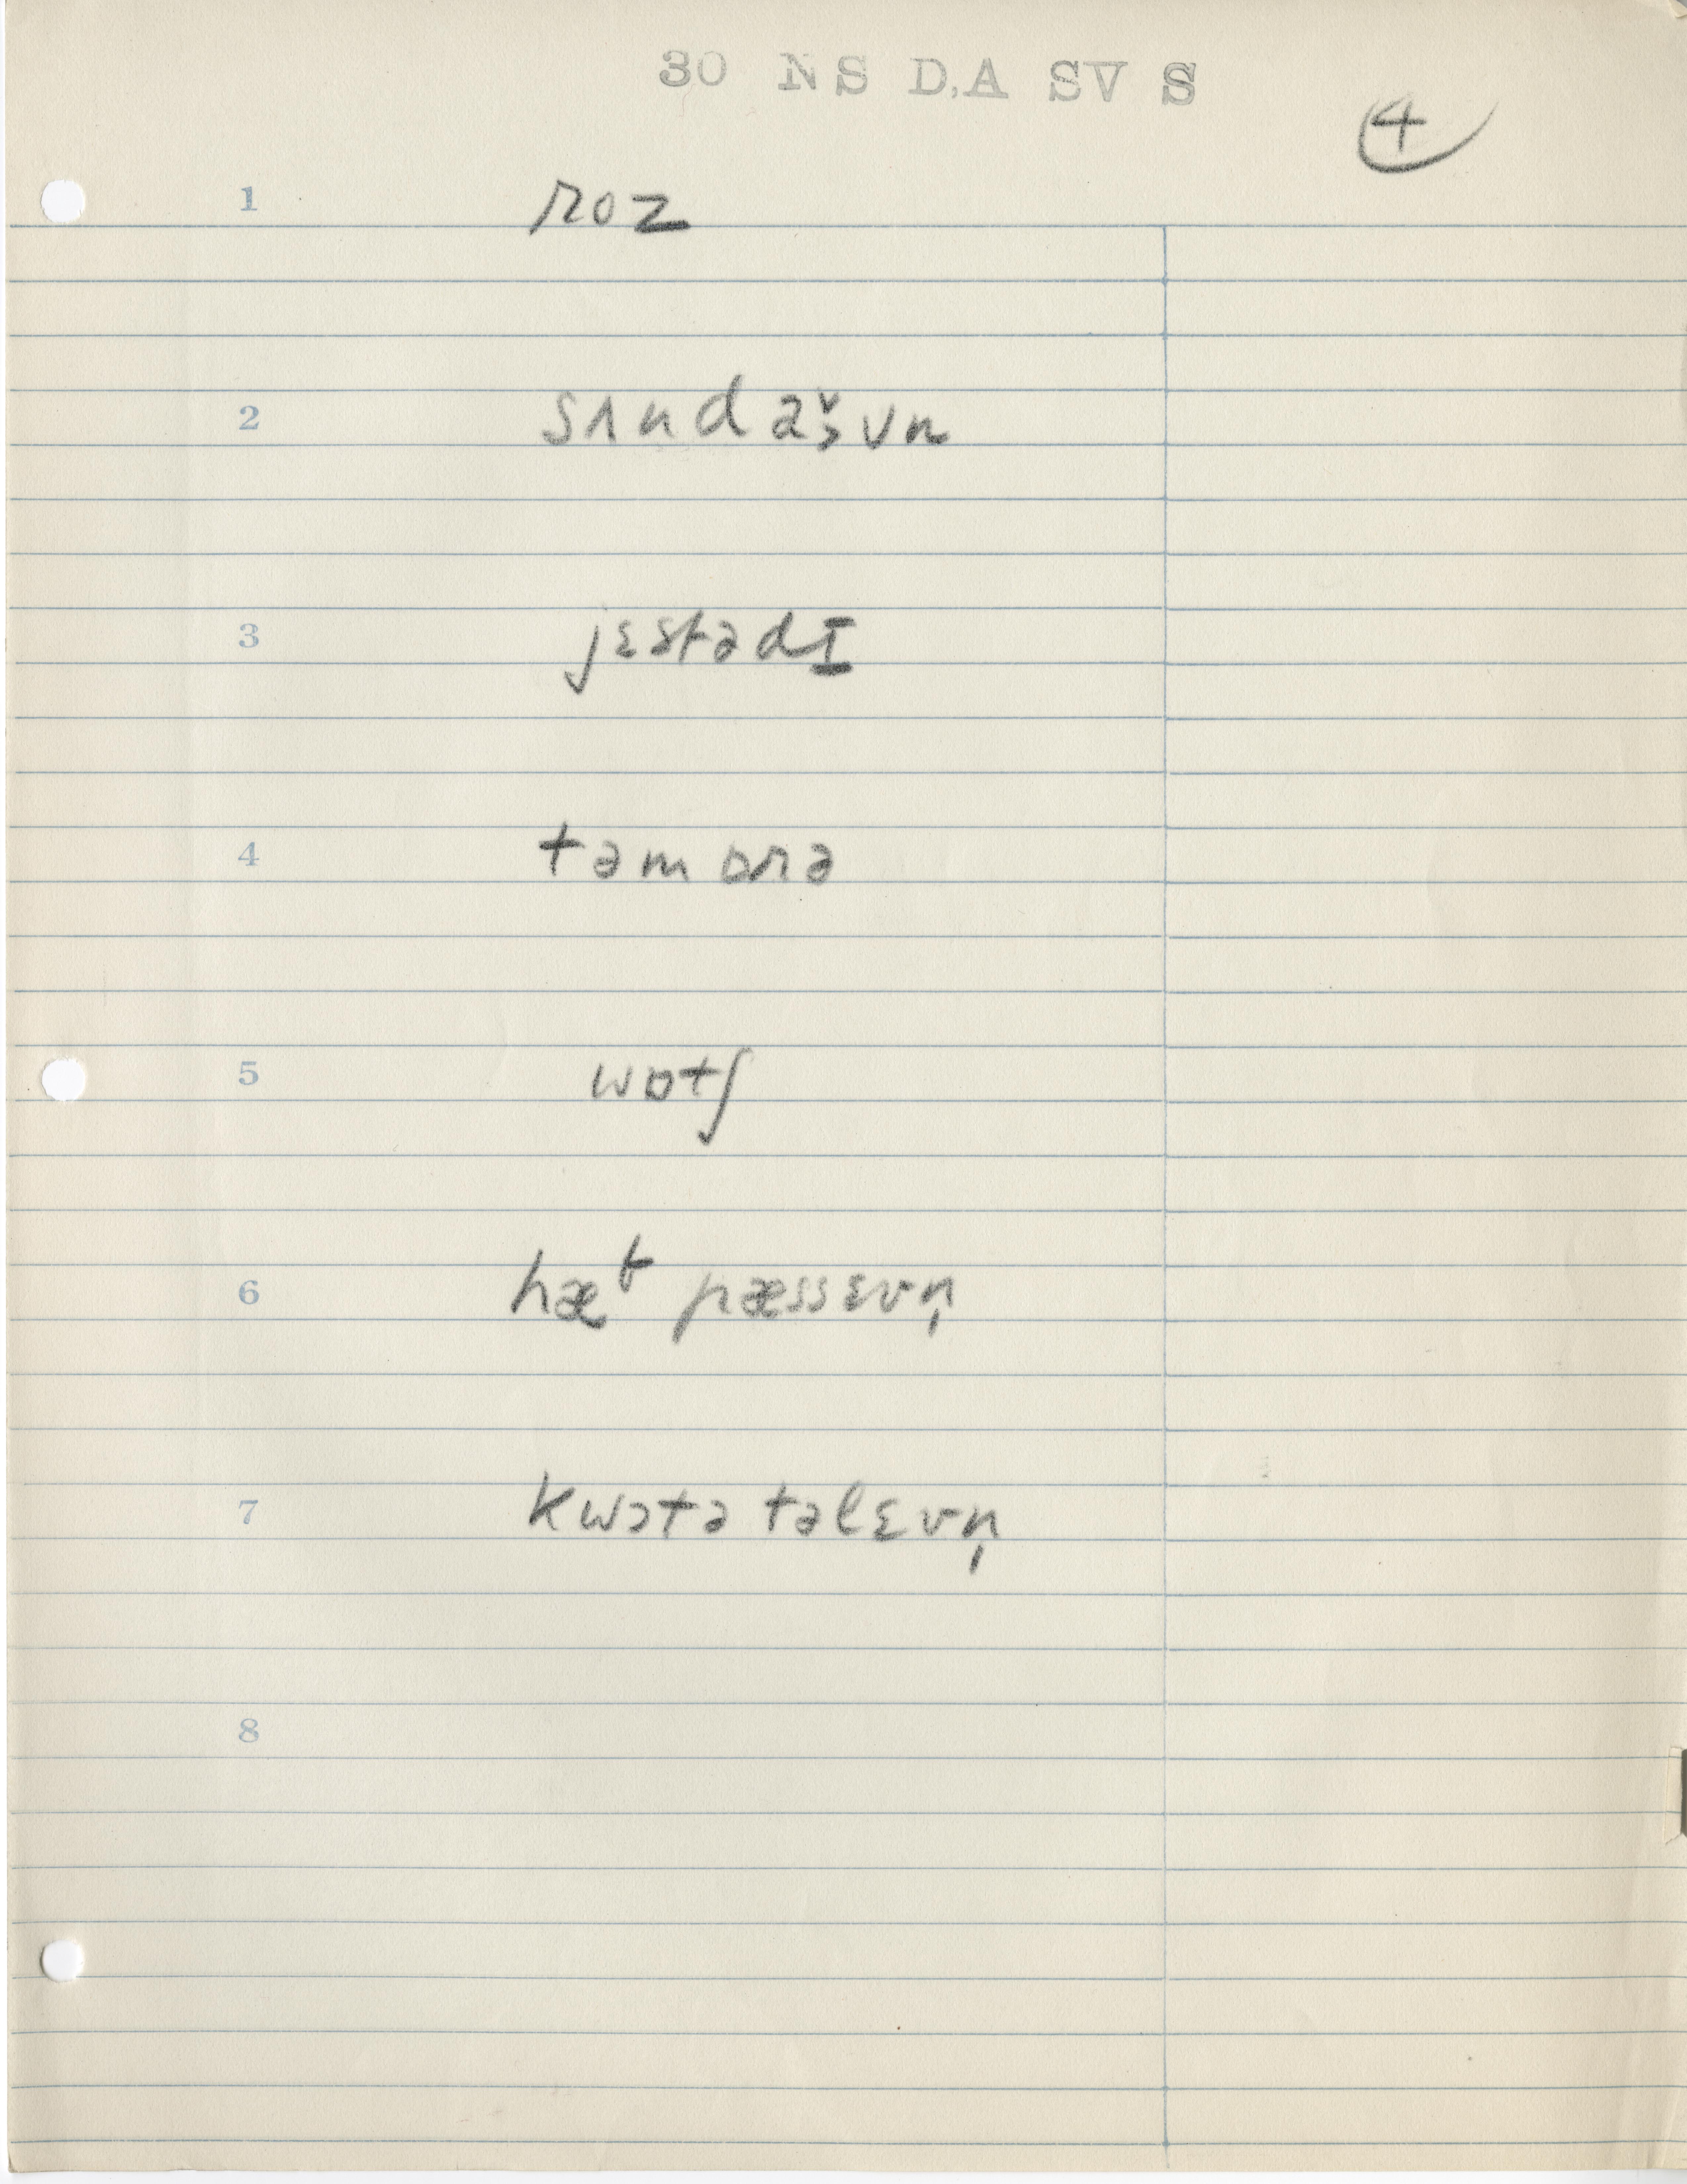 30 NS D,A SV S
4
1 roz
2 sʌndəš̬ʌn
3 jɛstədɪ
4 təmɒrə
5 wɒtʃ
6 hæt pæssɛvṇ
7 kwɔtə təlɛvṇ
8